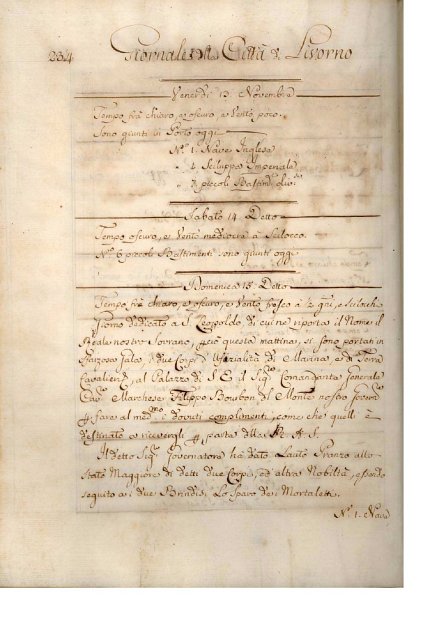 234 Giornale della Città di Livorno
Venerdì 13 Novembre
Tempo frà chiaro, e oscuro, e Vento poco.
Sono giunti in Porto oggi
N.° 1. Nave Inglese
1. Sciluppo Imperiale
7. piccoli Bastim.ti
Sabato 14. Detto
Tempo oscuro, e Vento mediocre à Scilocco.
N.° 6 piccoli Bastimenti sono giunti oggi
Domenica 15. Detto
Tempo frà chiaro, e oscuro, e Vento fresco a
Giorno dedicato a S. Leopoldo, di cui ne riporta il Nome il
Reale nostro Sovrano, perciò questa mattina, si sono portati in
Gala, i due Corpi d'Ufizialità di Marina, e di Terra
Cavalieri, al Palazzo di S. E. il Sig.re Comandante Generale
Cav.re Marchese Filippo Bourbon del Monte nostro
p fare al med.mo i dovuti complimenti, come che quell' è
destinato a ricevergli p parte della R. A. S.
Il detto Sig.re Governatore ha dato Lauto Pranzo allo
Stato Maggiore di detti due Corpi, ed altra Nobiltà, essendo
seguito a i due Brindisi, Lo Sparo de i Mortaletti.
N.° 1. Nave